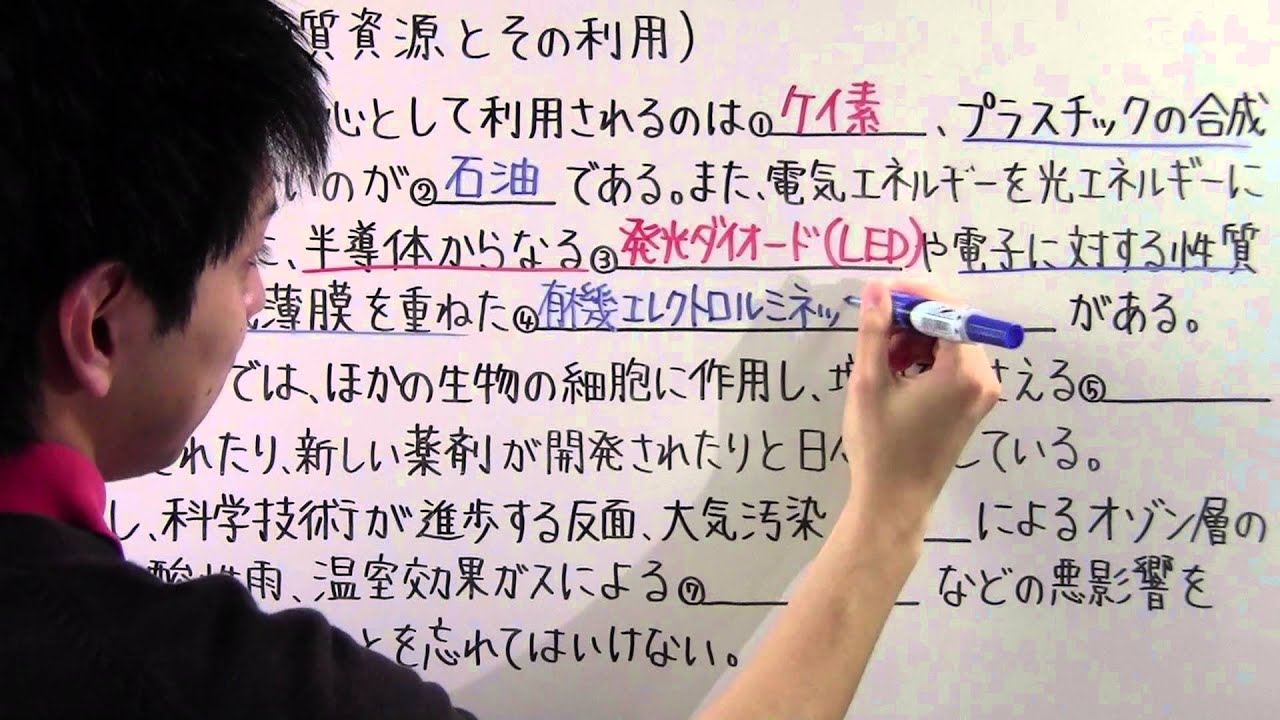 質資源とその利用)
心として利用されるのは①ケイ素、プラスチックの合成
いのが②石油である。また、電気エネルギーを光エネルギーに
、半導体からなる③発光ダイオード(LED)や電子に対する性質
薄膜を重ねた④有機エレクトロルミネッ がある。
では、ほかの生物の細胞に作用し、増 さえる⑤
れたり、新しい薬剤が開発されたりと日々 している。
し、科学技術が進歩する反面、大気汚染 によるオゾン層の
酸性雨、温室効果ガスによる⑦ などの悪影響を
とを忘れてはいけない。